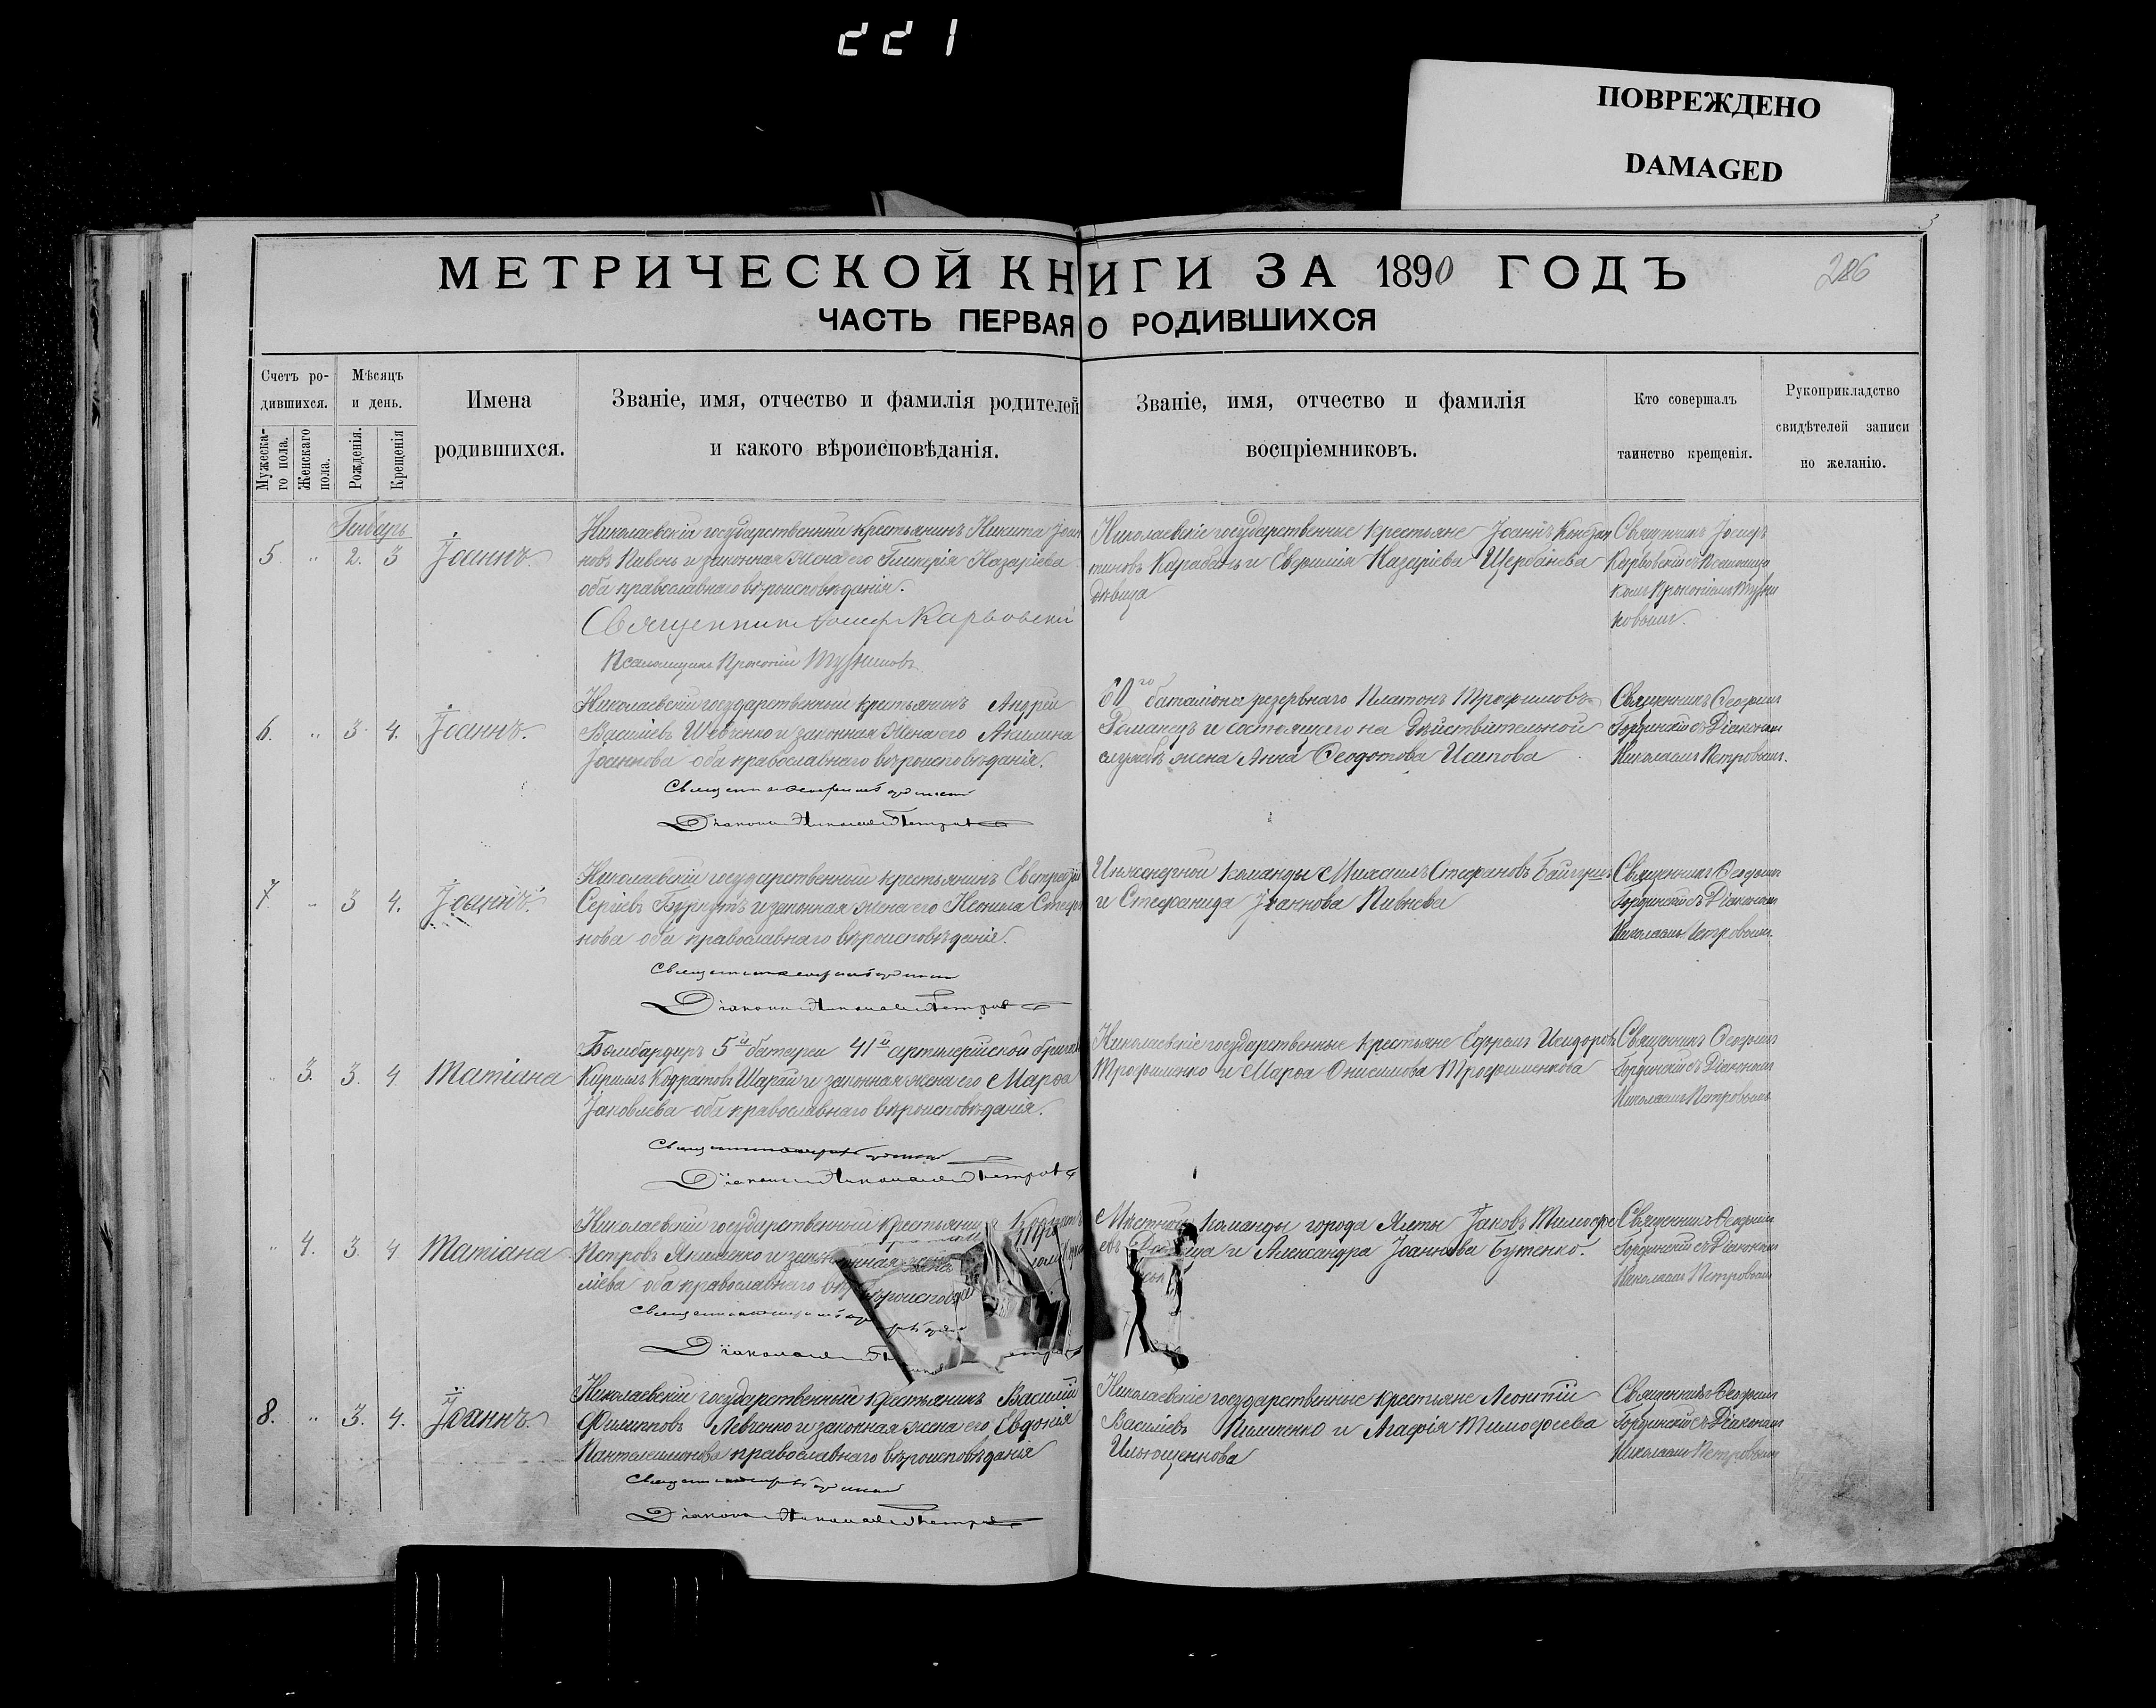 221
ПОВРЕЖДЕНО
DAMAGED
3
286
МЕТРИЧЕСКОЙ КНИГИ ЗА 1890 ГОДЪ
ЧАСТЬ ПЕРВАЯ О РОДИВШИХСЯ
Счетъ ро-
дившихся.
Мужеска-
го пола.
Женскаго
пола.
Мѣсяцъ
и день.
Рожденія.
Крещенія
Имена
родившихся.
Званіе, имя, отчество и фамилія родителей
и какого вѣроисповѣданія.
Званіе, имя, отчество и фамилія
воспріемниковъ.
Кто совершалъ
таинство крещенія.
Рукоприкладство
свидѣтелей записи
по желанію.
Генварь
5 " 2. 3 Іоаннъ.
Николаевскій государственный крестьянинъ Никита Іоан
новъ Пивень и законная жена его Гликерія Назаріева
оба православнаго вѣроисповѣданія.
Священникъ Іосифъ Карвовскій
Псаломщикъ Прокопій
Николаевскіе государственные крестьяне Іоаннъ Констан
тиновъ Карабань и Евфимія Назаріева Щербанева
дѣвица
Священникъ Іосифъ
Карвовскій съ Псаломщи
комъ Прокопіемъ
ковымъ.
6. " 3. 4. Іоаннъ.
Николаевскій государственный крестьянинъ Андрей
Василіевъ Шевченко и законная жена его Акилина
Іоаннова оба православнаго вѣроисповѣданія.
Діаконъ Николай Петровъ
60го баталіона резервнаго Платонъ Трофимовъ
Романецъ и состоящего на дѣйствительной
службѣ жена Анна Ѳеодотова Исипова
Священникъ Георгій
съ Діакономъ
Николаемъ Петровымъ.
7. " 3 4. Іоаннъ.
Николаевскій государственный крестьянинъ Евстратій
Сергіевъ и законная жена его Неонила Стефа
нова оба православнаго вѣроисповѣданія.
Діаконъ Николай Петровъ
Инженерной команды Михаилъ Стефановъ
и Стефанида Іоаннова Пивнева
Священникъ Георгій
съ Діакономъ
Николаемъ Петровымъ.
" 3. 3. 4 Татіана
Бомбардиръ 5й батареи 41й артилерійской бригады
Кирилъ Кодратовъ Шарай и законная жена его Марѳа
Іаковлева оба православнаго вѣроисповѣданія.
Діаконъ Николай Петровъ
Николаевскіе государственные крестьяне Ефремъ Исидоровъ
Трофименко и Марѳа Онисимова Трофименкова
Священникъ Георгій
съ Діакономъ
Николаемъ Петровымъ
" 4. 3. 4 Татіана
Николаевскій государственный крестьянинъ
Петровъ Якименко и законная жена
оба православнаго вѣроисповѣ
Мѣстной команды города Ялты Іаковъ Тимоѳе
евъ и Александра Іоаннова Бутенко.
Священникъ Георгій
съ Діакономъ
Николаемъ Петровымъ
8. " 3. 4. Іоаннъ.
Николаевскій государственный крестьянинъ Василій
Филипповъ Левченко и законная жена его Евдокія
Пантелеимонова православнаго вѣроисповѣданія
Діаконъ Николай Петровъ
Николаевскіе государственные крестьяне Леонтій
Василіевъ и Агафія Тимоѳеева
Ильющенкова
Священникъ Георгій
съ Діакономъ
Николаемъ Петровымъ